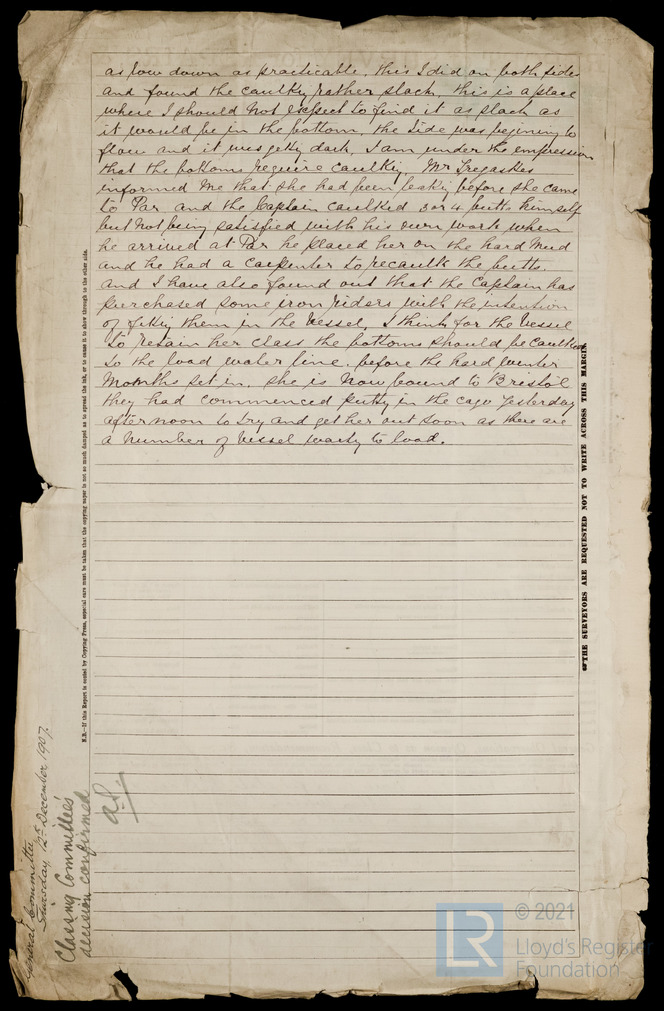 as low down as practicable, this I did on both sides
and found the caulkg rather slack, this is a place
where I should not expect to find it as slack as
it would be in the bottom, the tide was begining to
flow and it was gettg dark, I am under the empression
that the bottoms require caulkig. Mr Tregaskes
informed me that she had been leakig before she came
to Par and the Captain caulked 3 or 4 butts himself
but not being satisfied with his own work when
he arrived at Par he placed her on the hard mud
and he had a carpenter to recaulk the butts.
and I have also found out that the Captain has
purchased some iron riders with the intention
of fittig them in the Vessel, I think for the Vessel
to retain her class the bottoms should be caulked
to the load water line. before the hard winter
months set in. she is now bound to Bristol
they had commenced puttg in the cago yesterday
afternoon to try and get her out soon as there are
a number of Vessel waitg to load.
N.B.—If this Report is copied by Copying Press, especial care must be taken that the copying paper is not so much damped as to spread the ink, or to cause it to show through to the other side.
THE SURVEYORS ARE REQUESTED NOT TO WRITE ACROSS THIS MARGIN.
General Committee
Thursday, 12th December, 1907.
Classing Committee's
decision confirmed
© 2021
Lloyd's Register
Foundation
LR